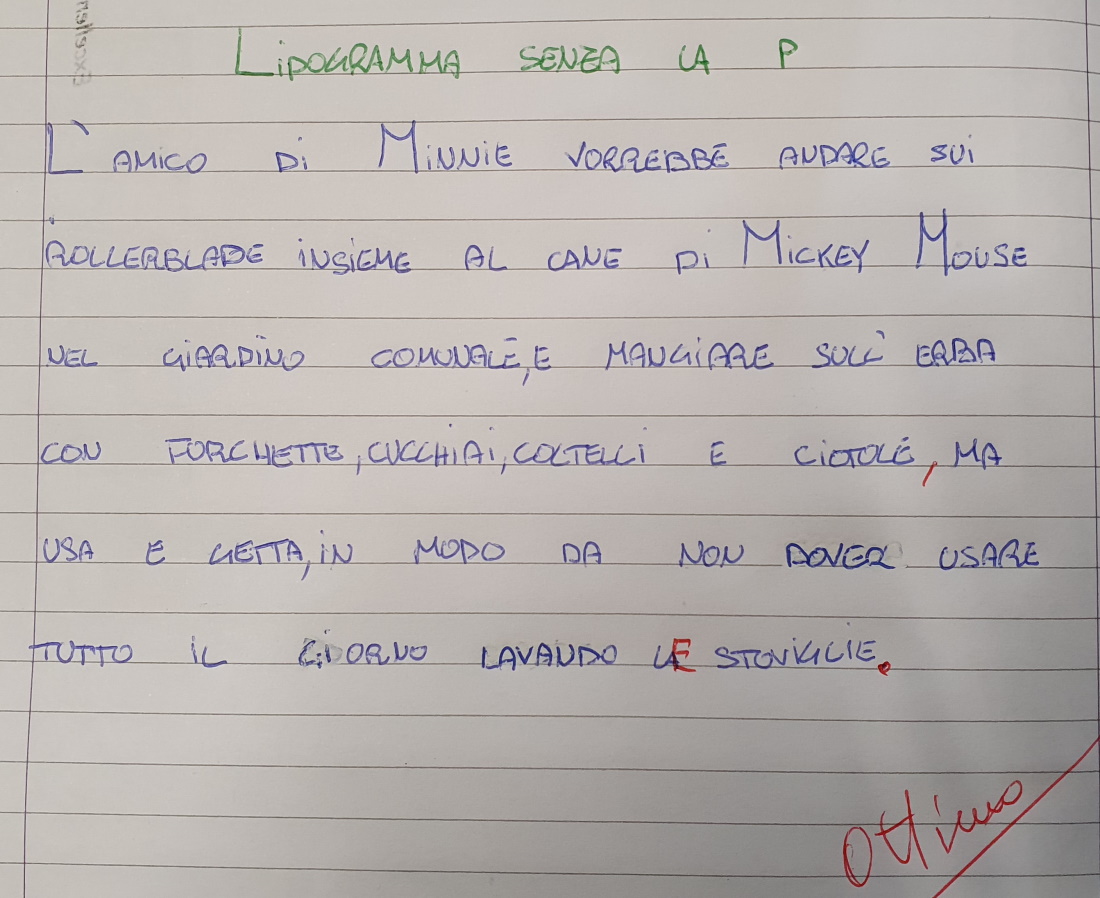 LIPOGRAMMA SENZA LA P
L'AMICO DI MINNIE VORREBBE ANDARE SUI
ROLLERBLADE INSIEME AL CANE DI MICKEY MOUSE
NEL GIARDINO COMUNALE, E MANGIARE SULL'ERBA
CON FORCHETTE, CUCCHIAI, COLTELLI E CIOTOLE, MA
USA E GETTA, IN MODO DA NON DOVER USARE
TUTTO IL GIORNO LAVANDO LE STOVIGLIE.
Ottimo